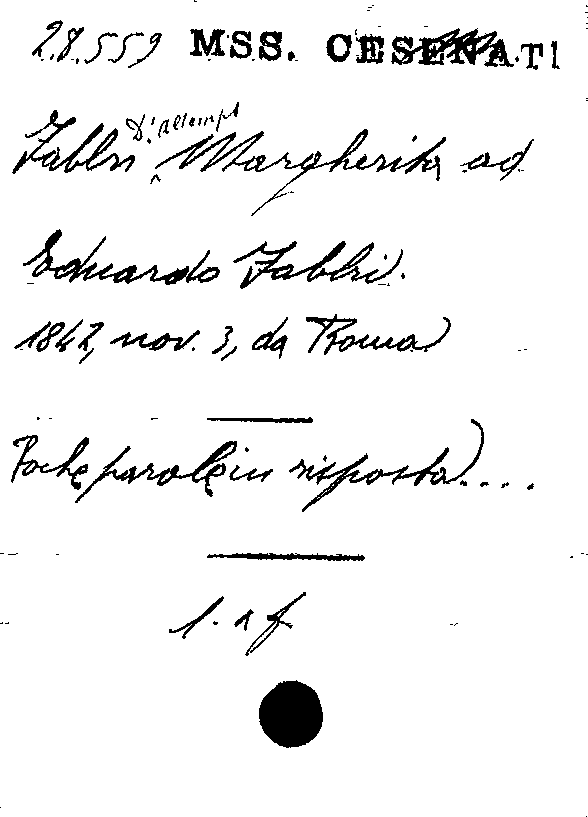 28.559 MSS. CESENATI
D'altemps
Fabbri Margherita ad
Eduardo Fabbri.
1842, nov. 3, da Roma
Poche parole in risposta....
l. a f.